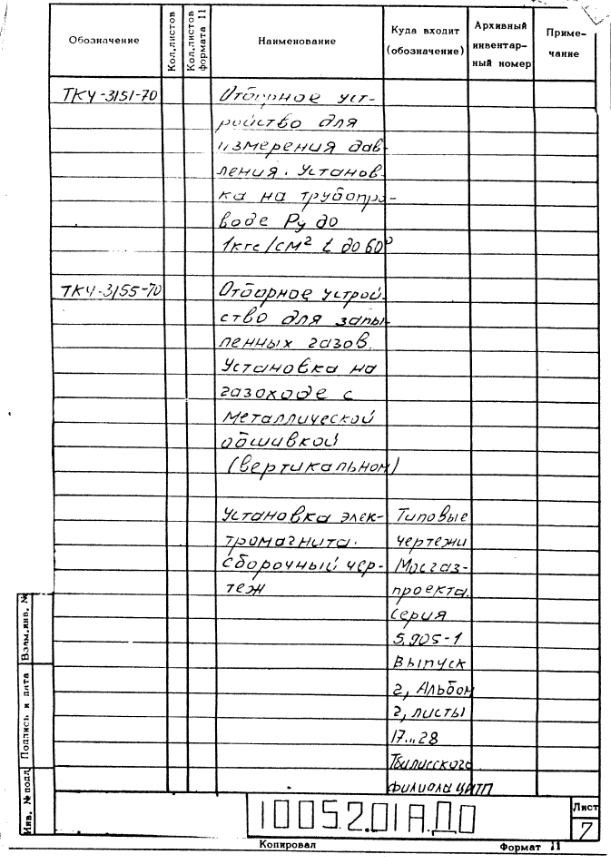 Обозначение
Кол.листов
Кол.листов формата 11
Наименование
Куда входит (обозначение)
Архивный инвентар-
ный номер
Приме-
чание
ТКЧ-3151-70
Отборное уст-
ройство для
измерения дав-
ления. Установ-
ка на трубопро-
воде Ру до
1кгс/см² t до 60°
ТКЧ-3155-70
Отборное устрой-
ство для запы-
ленных газов.
Установка на
газоходе с
металлической
обшивкой
(вертикальном)
Установка элек-
тромагнита.
Сборочный чер-
теж
Типовые
чертежи
Мосгаз-
проекта.
Серия
5.905-1
Выпуск
2, Альбом
2, листы
17...28
Тбилисского
филиала ЦИТП
Взам.инв. №
Подпись и дата
Инв. № подл
10052.01А.Д0
Лист
7
Копировал
Формат 11